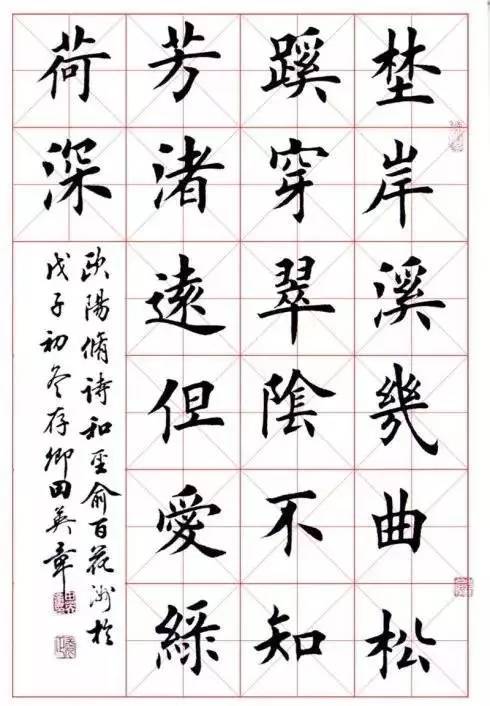 埜岸溪幾曲松
蹊穿翠陰不知
芳渚遠但愛綠
荷深
歐陽脩詩和聖俞百花洲於
戊子初冬存卿田英章